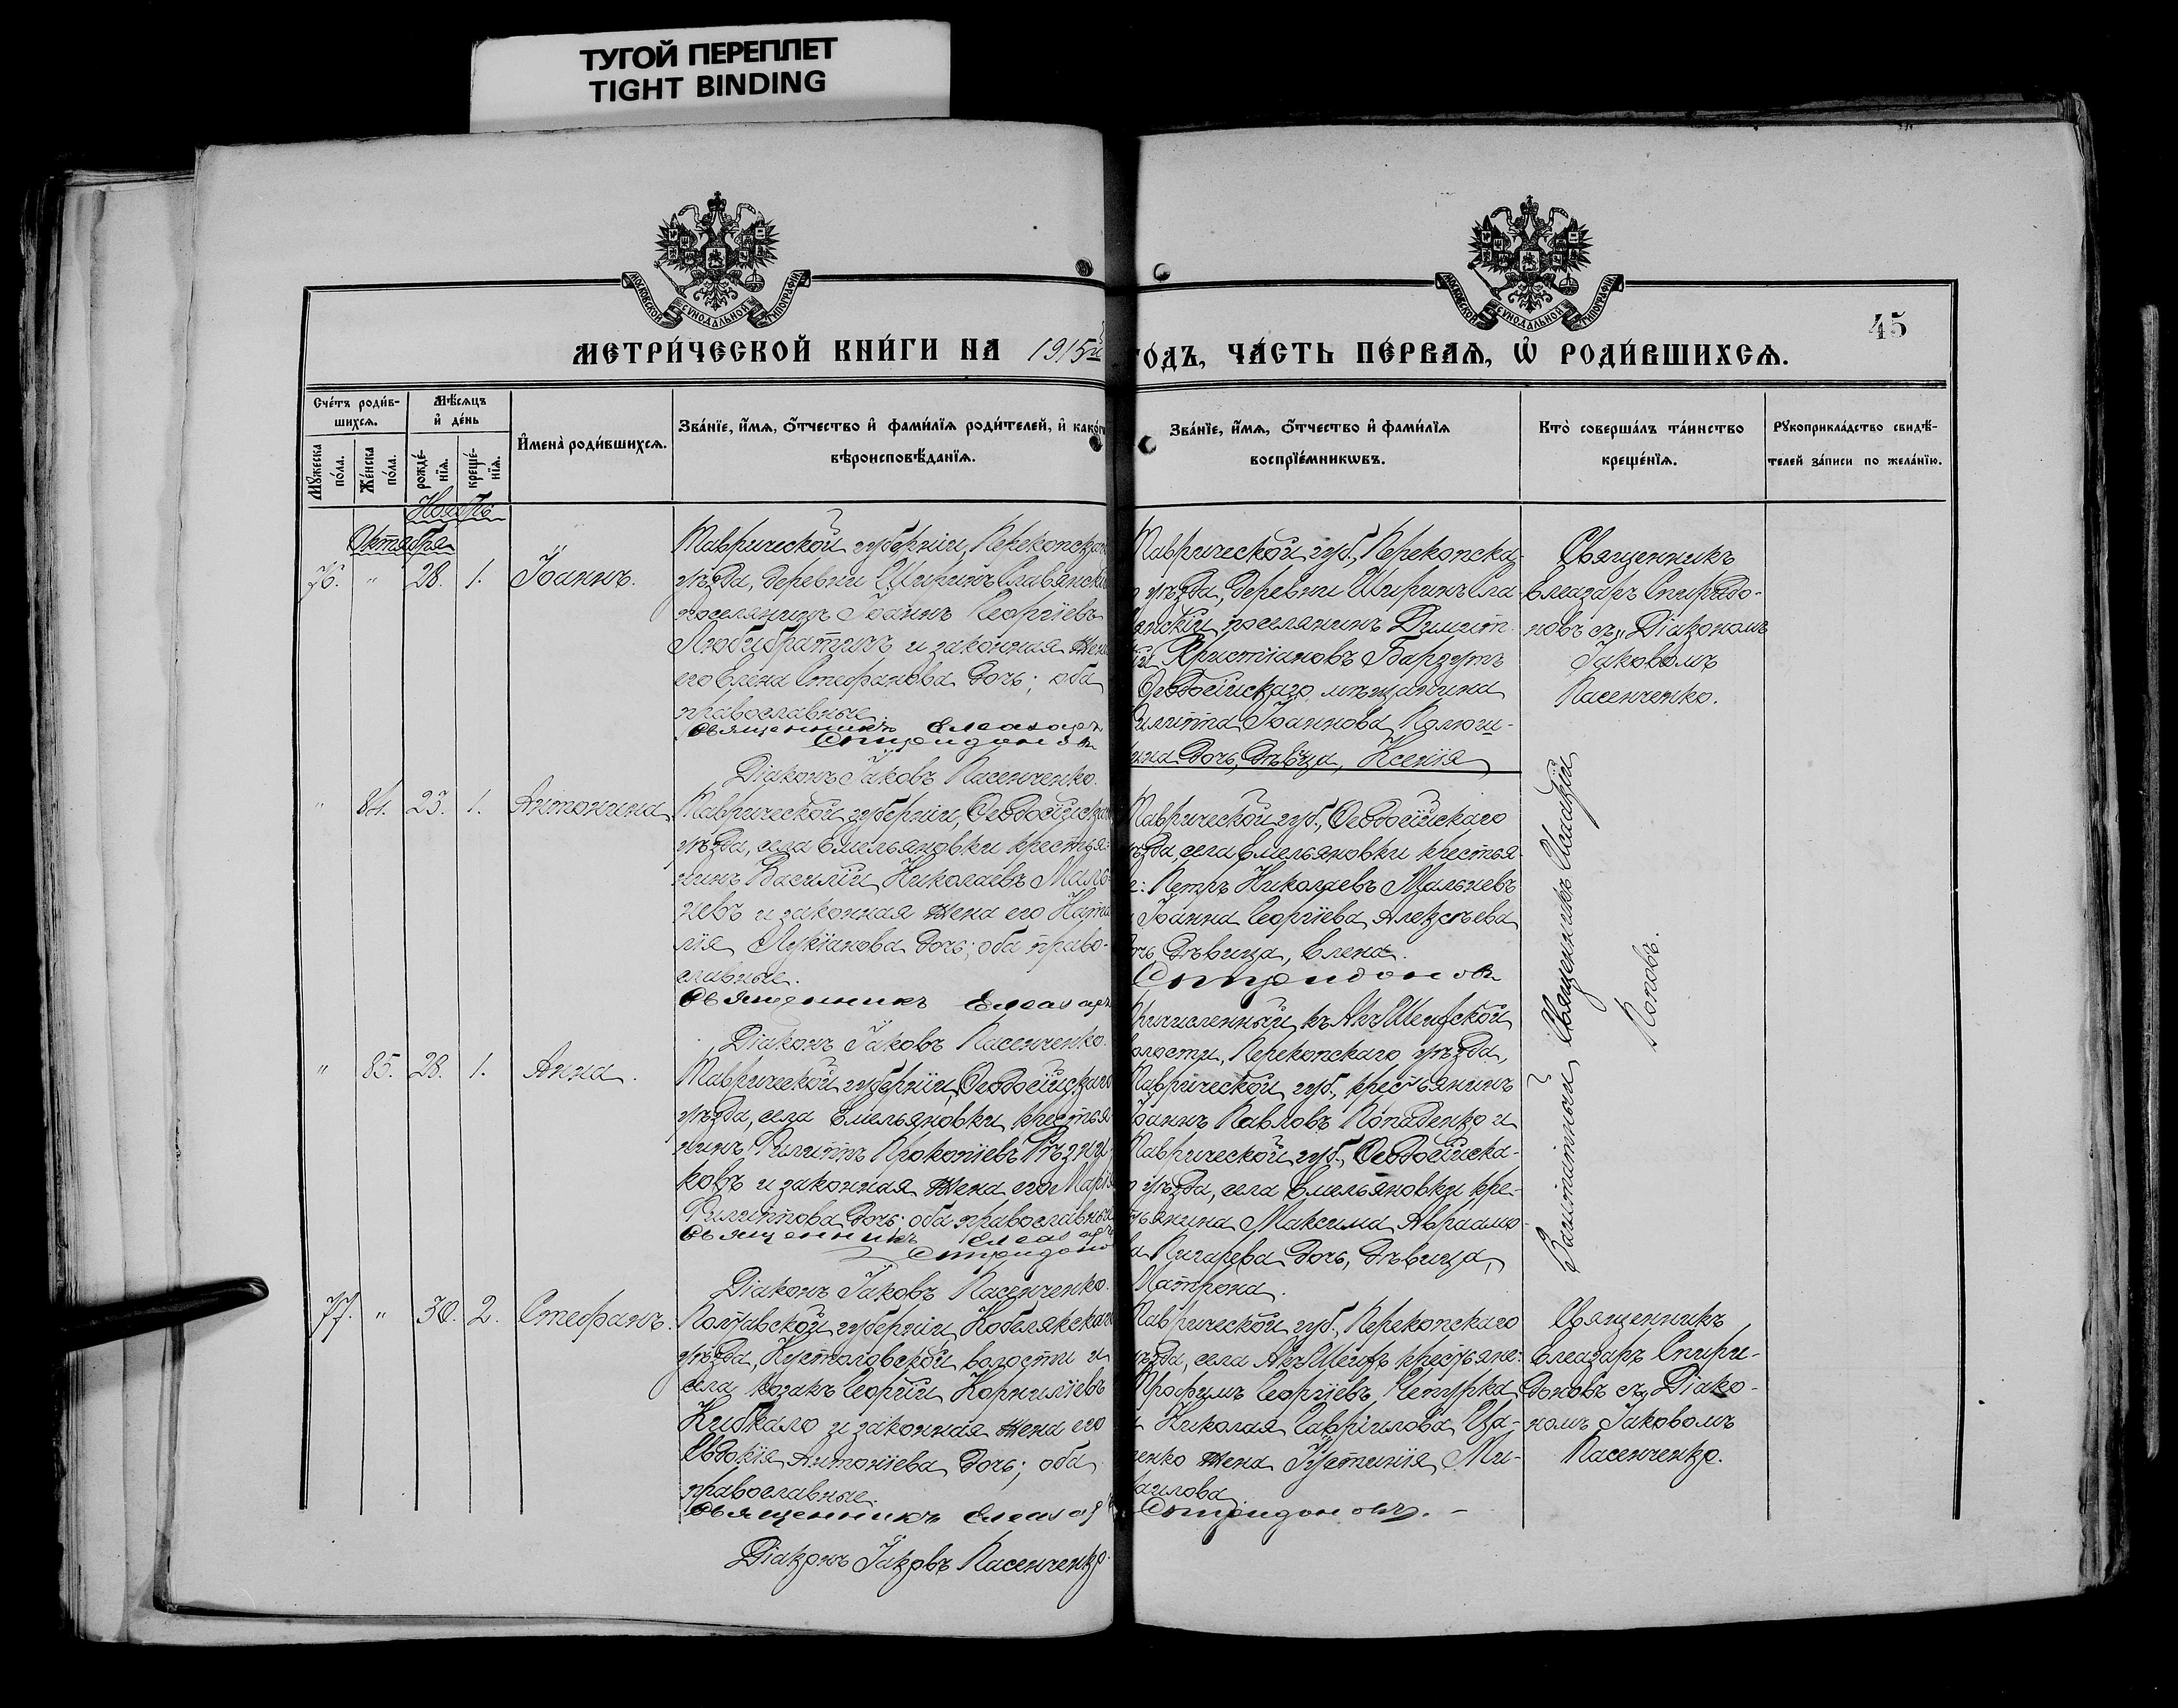 ТУГОЙ ПЕРЕПЛЕТ
TIGHT BINDING
МОСКОВСКОЙ СѴНОДАЛЬНОЙ ТИПОГРАФІИ
МОСКОВСКОЙ СѴНОДАЛЬНОЙ ТИПОГРАФІИ
45
МЕТРИ́ЧЕСКОЙ КНИ́ГИ НА 1915й ГО́ДЪ, ЧА́СТЬ ПЕ́РВАѦ, Ѡ҆ РОДИ́ВШИХСѦ.
Сче́тъ роди́в-
шихсѧ.
Мѣ́сѧцъ
и҆ де́нь
Мꙋ́жеска по́ла.
Же́нска по́ла.
рожде́-
нїѧ.
креще́-
нїѧ.
И҆мена̀ роди́вшихсѧ.
Зва́нїе, и҆́мѧ, ѻ҆́тчество и҆ фами́лїѧ роди́телей, и҆ како́гѡ
вѣроисповѣ́данїѧ.
Зва́нїе, и҆́мѧ, ѻ҆́тчество и҆ фами́лїѧ
воспрїе́мникѡвъ.
Кто̀ соверша́лъ та́инство
креще́нїѧ.
Рꙋкоприкла́дство свидѣ́-
телей за́писи по жела́нїю.
Ноябрь
Октября
76. " 28. 1. Іоаннъ.
Таврической губерніи, Перекопскаго
уѣзда, деревни Ширинъ Славянскій
поселянинъ Іоаннъ Георгіевъ
Любибратичъ и законная жена
его Елена Стефанова дочь; оба
православные.
Священникъ Елеазаръ
Спиридоновъ
Діаконъ Іаковъ Пасенченко.
Таврической губ., Перекопска-
уѣзда, деревни Ширинъ Сла-
вянскій поселянинъ Димит-
Христіановъ
Ѳеодосійскаго мѣщанина
Филиппа Іоаннова
дочь, дѣвица, Ксенія
Священникъ
Елеазаръ Спиридо-
новъ съ Діакономъ
Іаковомъ
Пасенченко.
" 84. 23. 1. Антонина
Таврической губерніи, Ѳеодосійскаго
уѣзда, села Емельяновки крестья-
нинъ Василій Николаевъ Маль-
невъ и законная жена его Ната
лія Лукіанова дочь; оба право-
славные.
Священникъ Елеазаръ
Діаконъ Іаковъ Пасенченко.
Таврической губ., Ѳеодосійскаго
уѣзда, села Емельяновки крестья-
не: Петръ Николаевъ Мальневъ
и Іоанна Георгіева Алексѣева
дочь дѣвица, Елена.
Спиридоновъ
Священникъ
Поповъ.
" 85. 28. 1. Анна.
Таврической губерніи, Ѳеодосійскаго
уѣзда, села Емельяновки крестья
нинъ Филиппъ Прокопіевъ Рѣзни-
ковъ и законная жена его Марія
Филиппова дочь; оба православные
Священникъ Елеазаръ
Спиридоно
Діаконъ Іаковъ Пасенченко.
Причисленный къ Акъ Шеихской
волости, Перекопскаго уѣзда,
Таврической губ., крестьянинъ
Іоаннъ Павловъ Попаденко и
Таврической губ., Ѳеодосійска-
го уѣзда, села Емельяновки кре-
стьянина Максима Авраамо-
ва Пигарева дочь, дѣвица,
Матрона.
77. " 30. 2. Стефанъ.
Полтавской губерніи, Кобелякскаго
уѣзда, Кустоловской волости и
села козакъ Георгій Корниліевъ
Кибкало и законная жена его
Евдокія Антоніева дочь; оба
православные.
Священникъ Елеазаръ
Діаконъ Іаковъ Пасенченко.
Таврической губ., Перекопскаго
уѣзда, села Акъ Шеихъ крестьяне:
Трофимъ Георгіевъ Чепурка
и Николая Гавріилова Ца-
ценко жена Іустинія Ми-
хаилова
Спиридоновъ. -
Священникъ
Елеазаръ Спири-
доновъ съ Діако-
номъ Іаковомъ
Пасенченко.